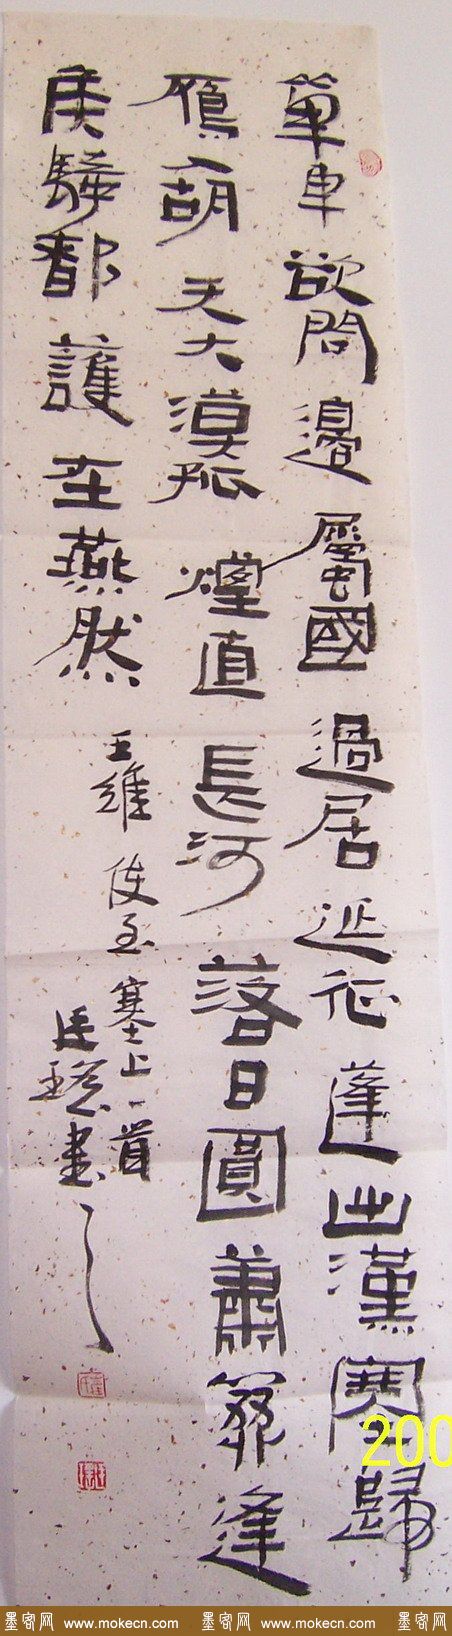 單車欲問邊屬國過居延征蓬出漢塞歸
鴈入胡天大漠孤煙直長河落日圓蕭關逢
侯騎都護在燕然
王維使至塞上一首
書
200
墨客网 www.mokecn.com 墨客网 www.mokecn.com